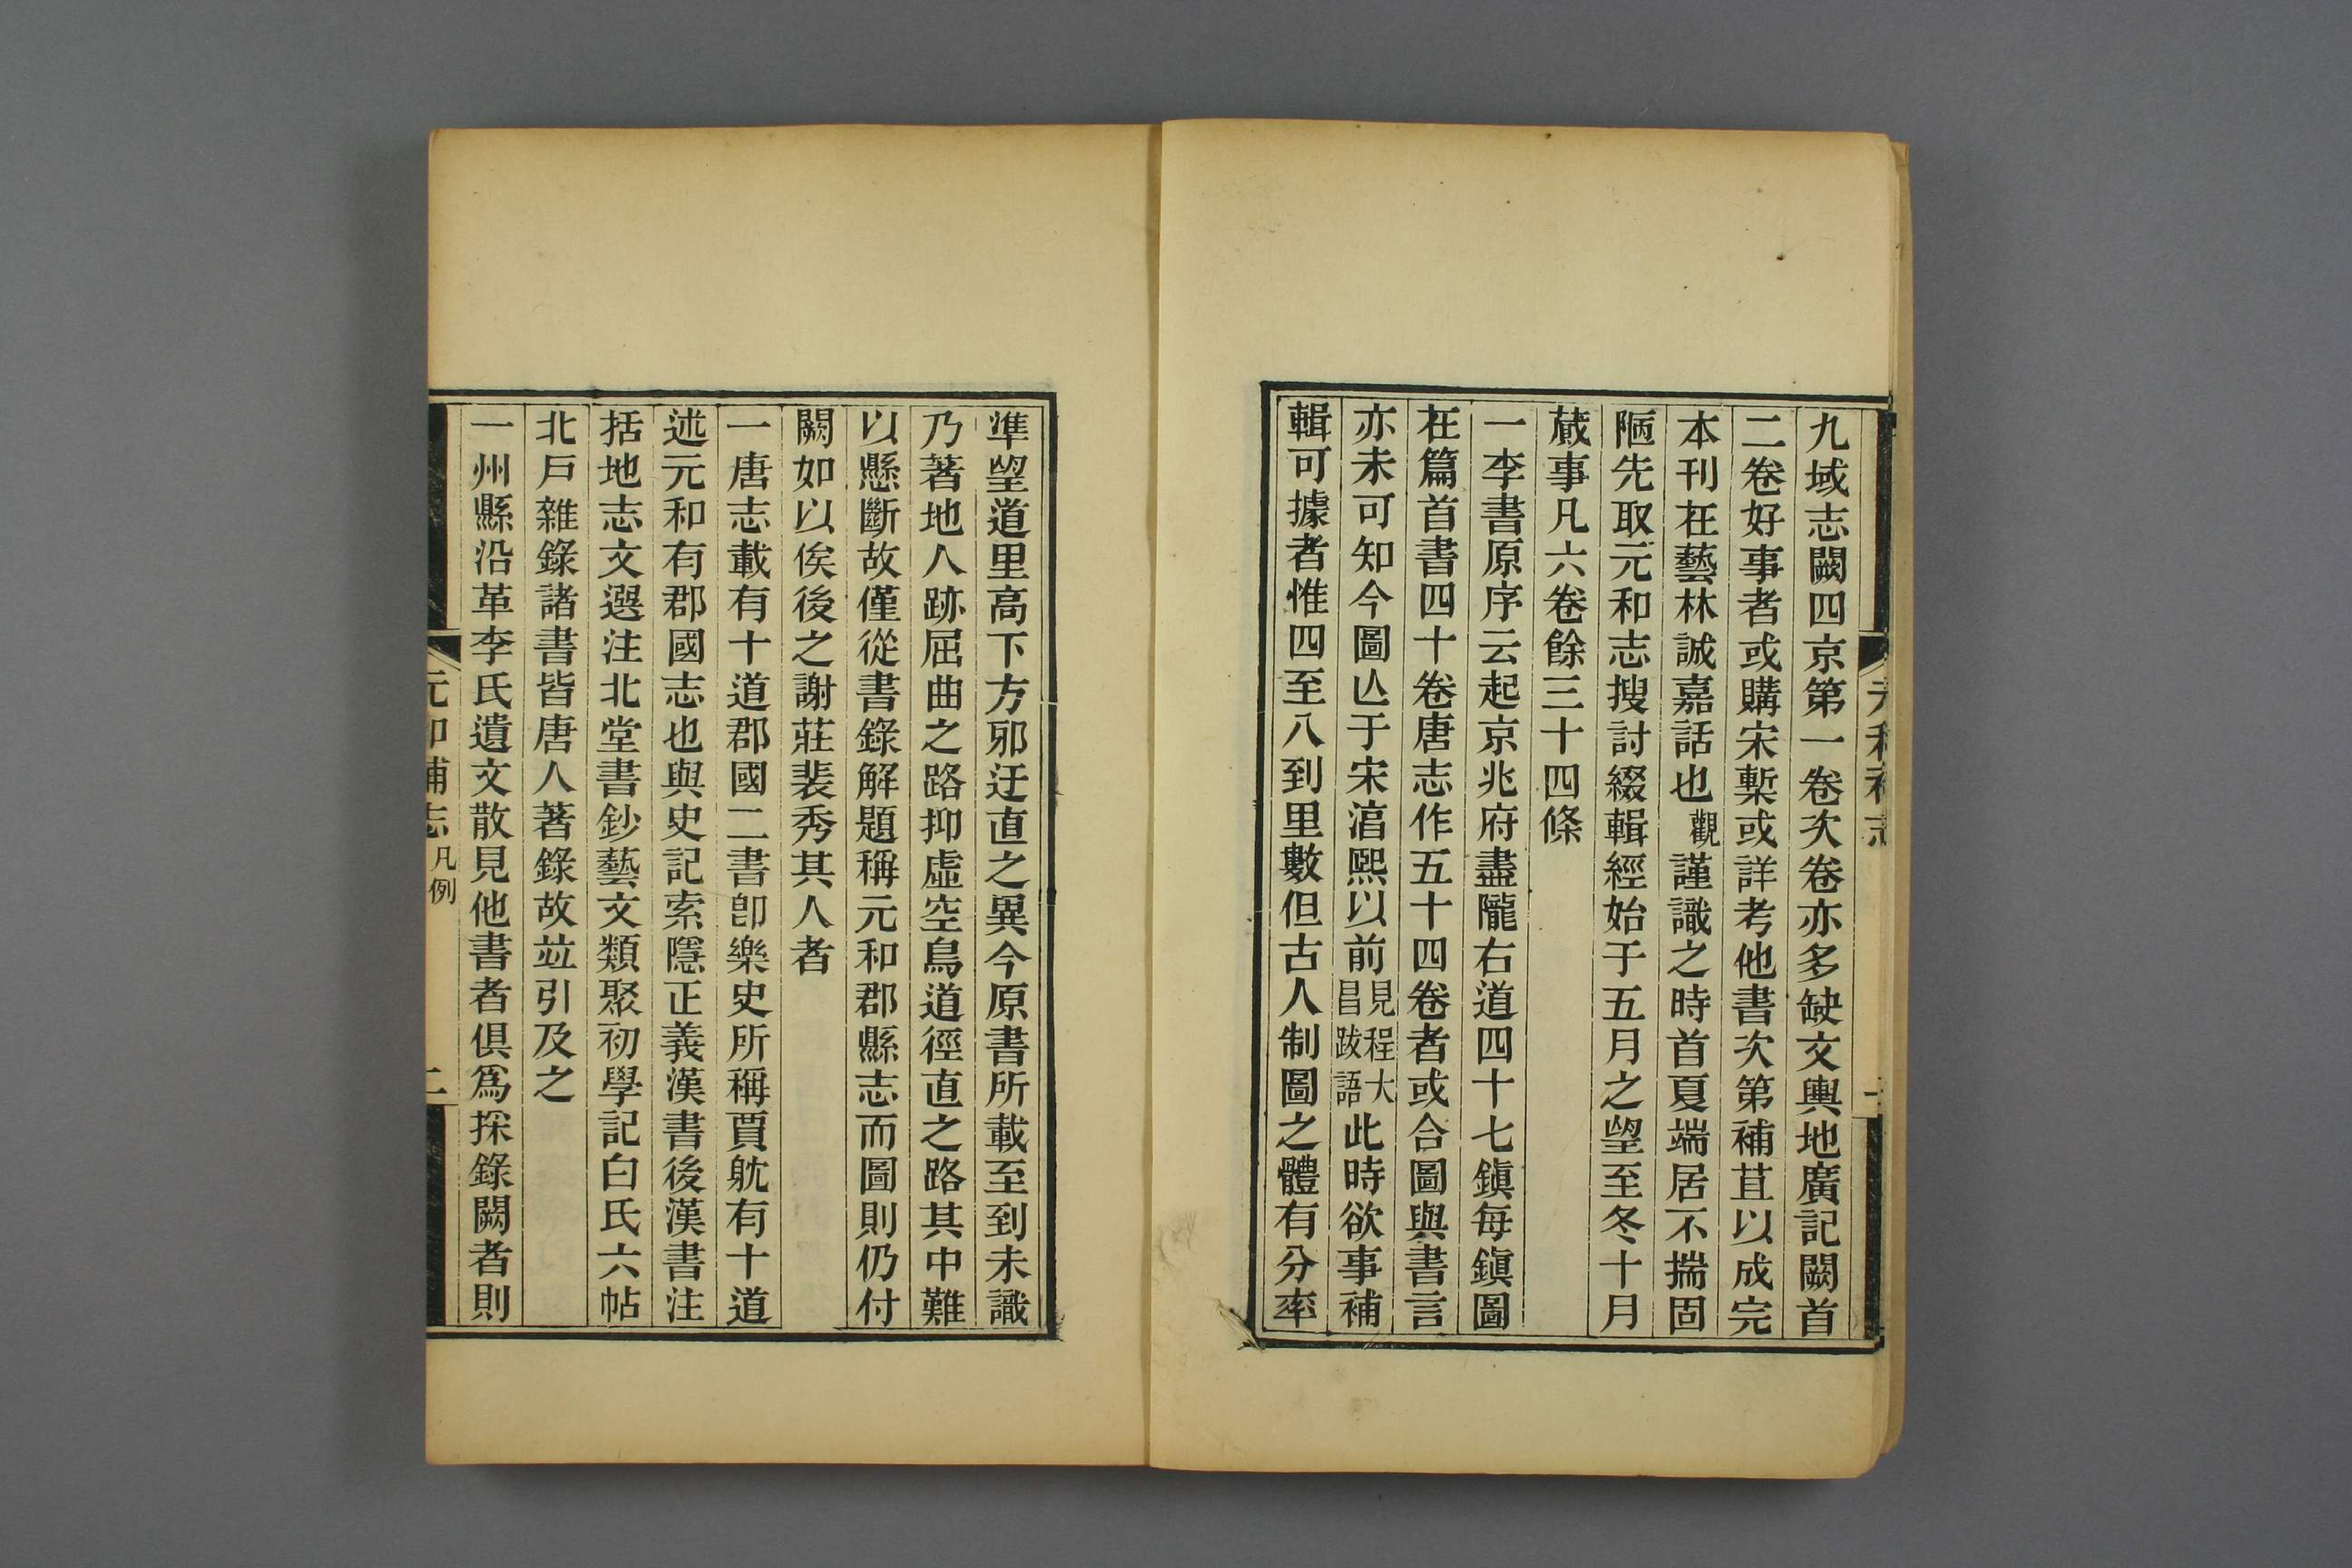 九域志闕四京第一卷次卷亦多缺文輿地廣記闕首
二卷好事者或購宋槧或詳考他書次第補苴以成完
本刊在藝林誠嘉話也觀謹識之時首夏端居不揣固
陋先取元和志搜討綴輯經始于五月之望至冬十月
蕆事凡六卷餘三十四條
一李書原序云起京兆府盡隴右道四十七鎭每鎭圖
在篇首書四十卷唐志作五十四卷者或合圖與書言
亦未可知今圖亾于宋湻熙以前見程大昌跋語此時欲事補
輯可據者惟四至八到里數但古人制圖之體有分率
準望道里高下方邪迂直之異今原書所載至到未識
乃著地人跡屈曲之路抑虛空鳥道徑直之路其中難
以懸斷故僅從書錄解題稱元和郡縣志而圖則仍付
闕如以俟後之謝莊裴秀其人者
一唐志載有十道郡國二書卽樂史所稱賈躭有十道
述元和有郡國志也與史記索隱正義漢書後漢書注
括地志文選注北堂書鈔藝文類聚初學記白氏六帖
北戸雜錄諸書皆唐人著錄故竝引及之
一州縣沿革李氏遺文散見他書者俱爲採錄闕者則
元和補志 凡例 二